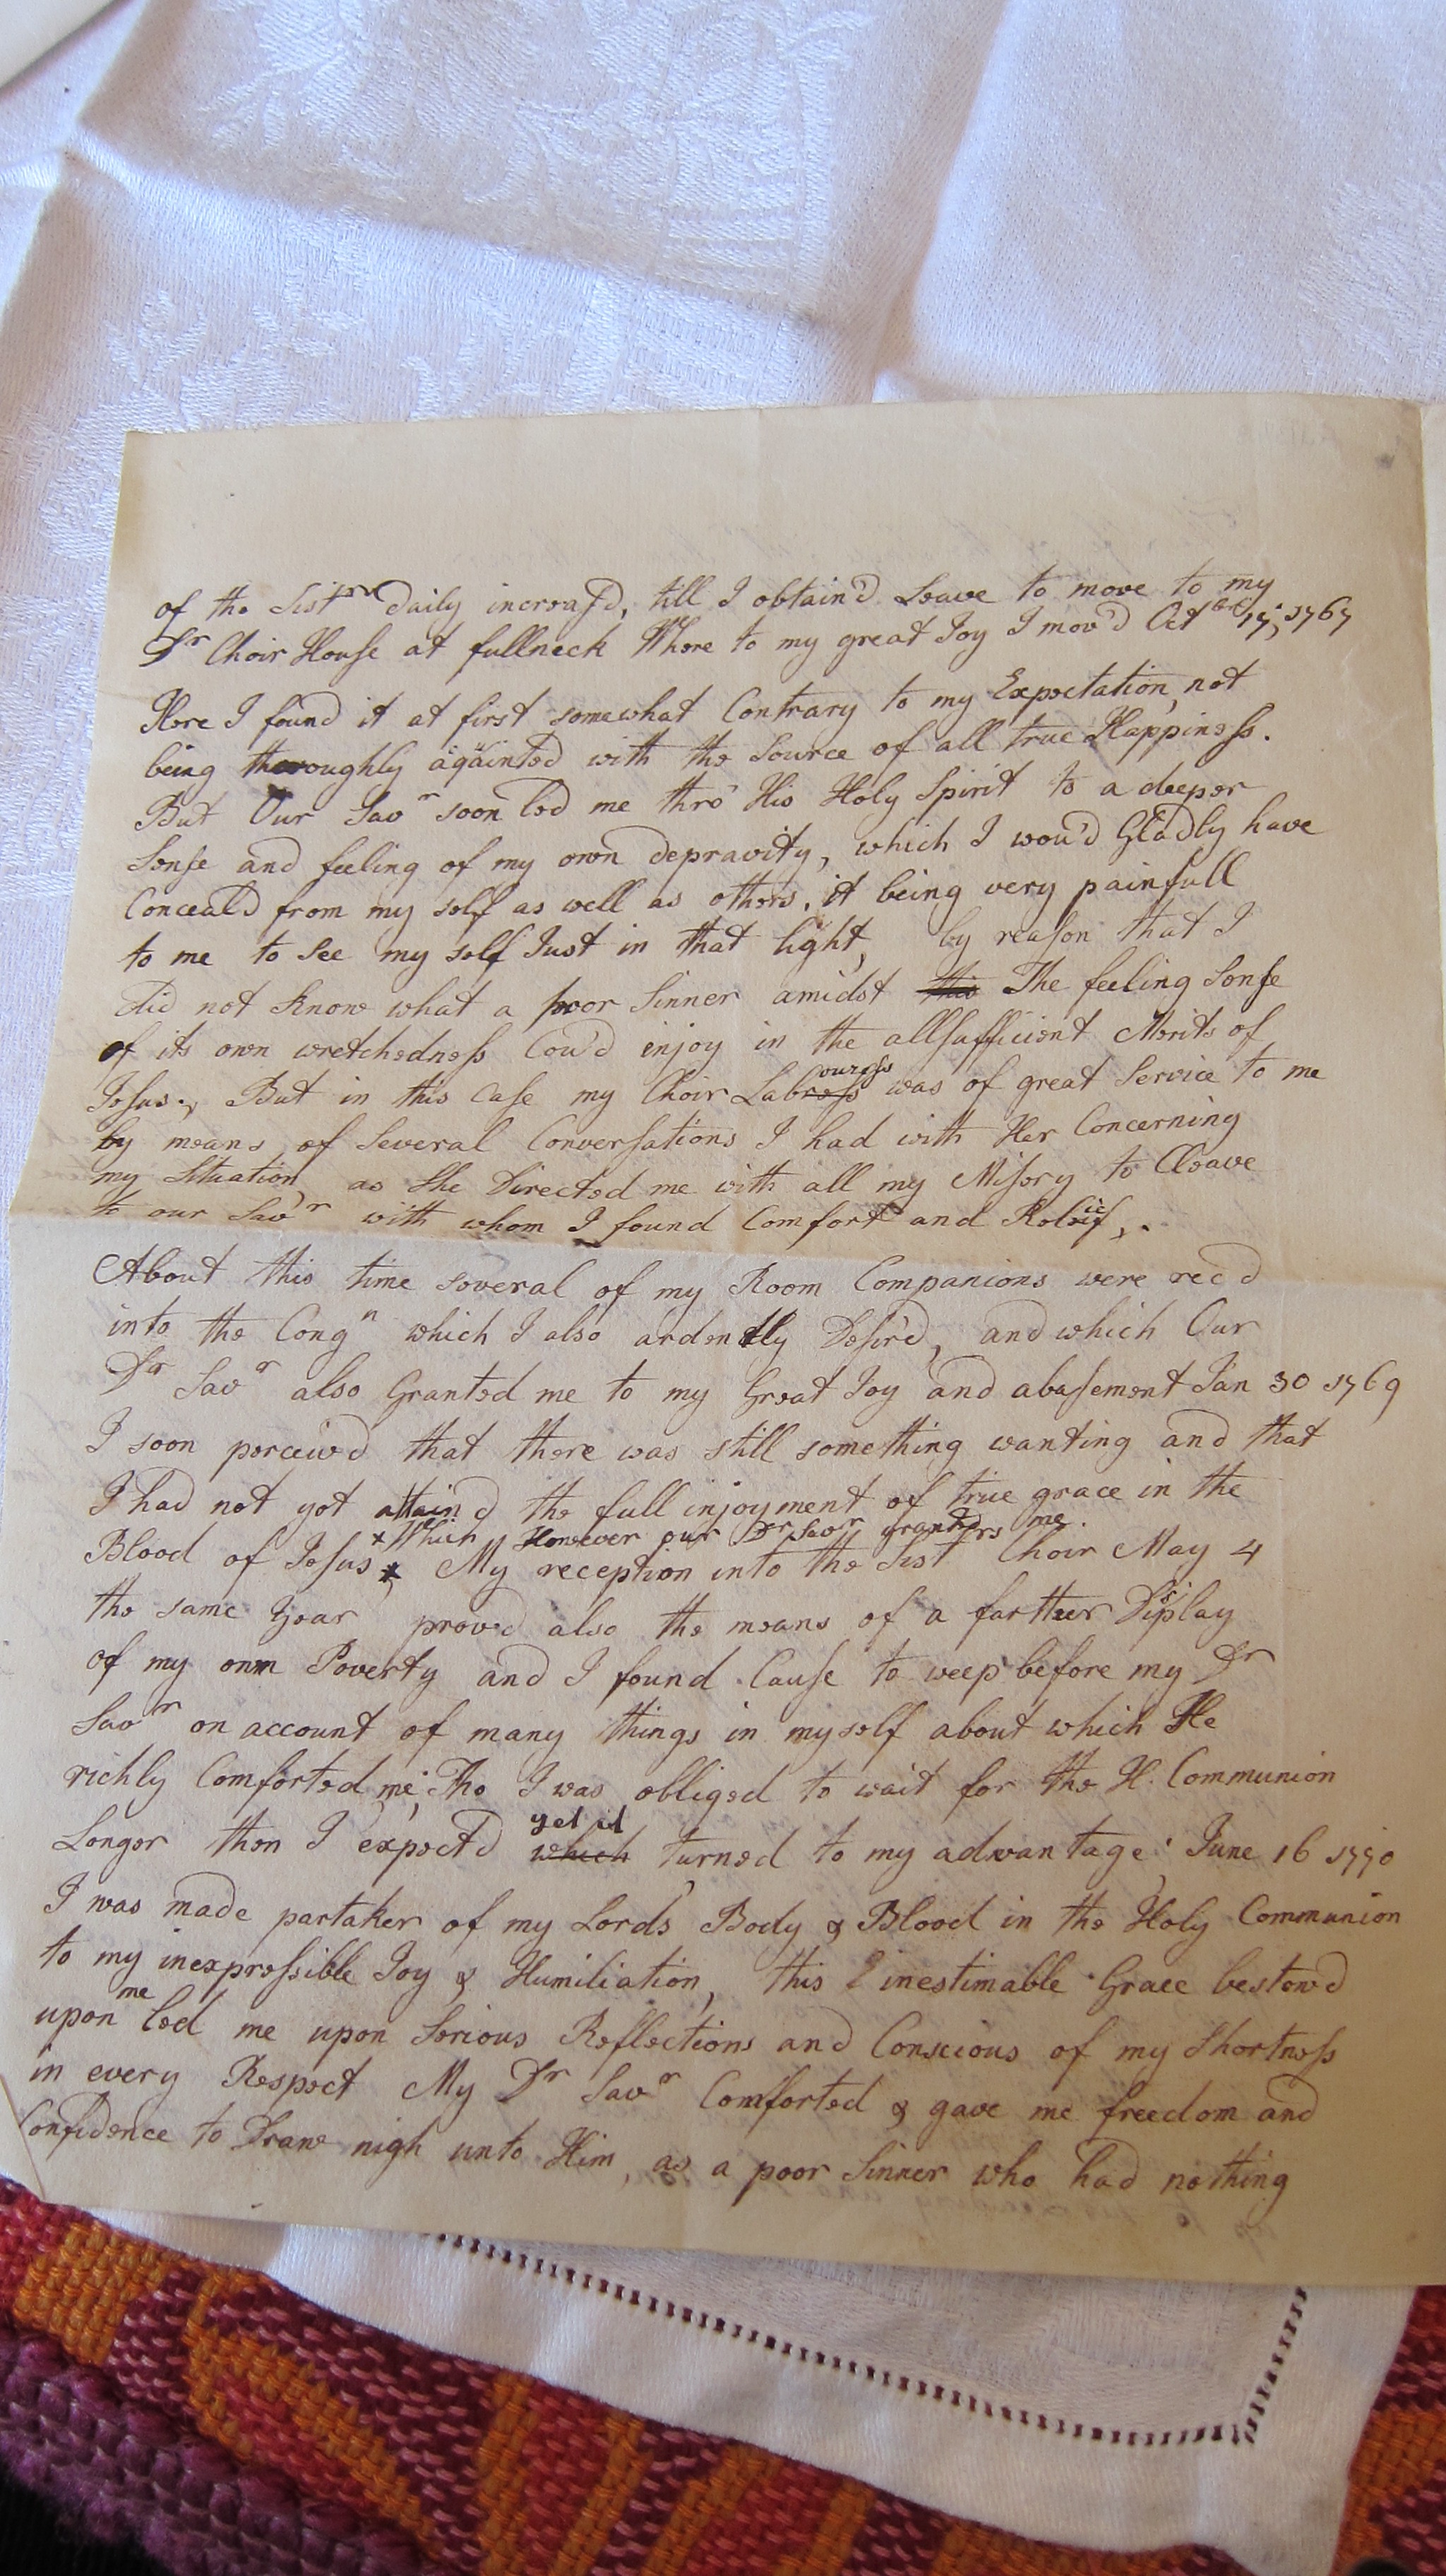 of the Sist.rs Daily increas'd, till I obtain'd Leave to move to my
Dr Choir House at fullneck Where to my great Joy I mov'd Octbr 17, 1767
Here I found it at first somewhat Contrary to my Expectation, not
being thoroughly aqainted with the Source of all true Happiness.
But Our Savr soon led me thro' His Holy Spirit to a deeper
Sense and feeling of my own depravity, which I wou'd Gladly have
Conceal'd from my self as well as others, it being very painfull
to me to see my self Just in that light, by reason that I
did not know what a poor Sinner amidst this The feeling Sense
of its own wretchedness Cou'd enjoy in the allsufficient Merits of
Jesus., But in this Case my Choir Labress ouress was of great Service to me
by means of Several Conversations I had with Her Concerning
my Situation as She Directed me with all my Misery to Cleave
to our Savr with whom I found Comfort and Relief,.
About this time several of my Room Companions were rec'd
into the Congn which I also ardently Desir'd, and which Our
Dr Savr also Granted me to my Great Joy and abasement Jan 30 1769
I soon perceiv'd that there was still something wanting and that
I had not yet attain'd the full injoyment of true grace in the
* Which However our Dr Savr granted me.
Blood of Jesus * My reception into the Sistrs Choir May 4
the same Year prov'd also the means of a farther Display
of my own Poverty and I found Cause to weep before my Dr
Savr on account of many things in myself about which He
richly Comforted me, Tho I was obliged to wait for the H. Communion
yet it
Longer then I expect'd which turned to my advantage; June 16 1770
I was made partaker of my Lords Body & Blood in the Holy Communion
to my inexpressible Joy & Humiliation, this inestimable Grace bestow'd
me
upon led me upon Serious Reflections and Conscious of my Shortness
in every Respect My Dr Savr Comforted & gave me freedom and
Confidence to Draw nigh unto Him, as a poor Sinner who had nothing